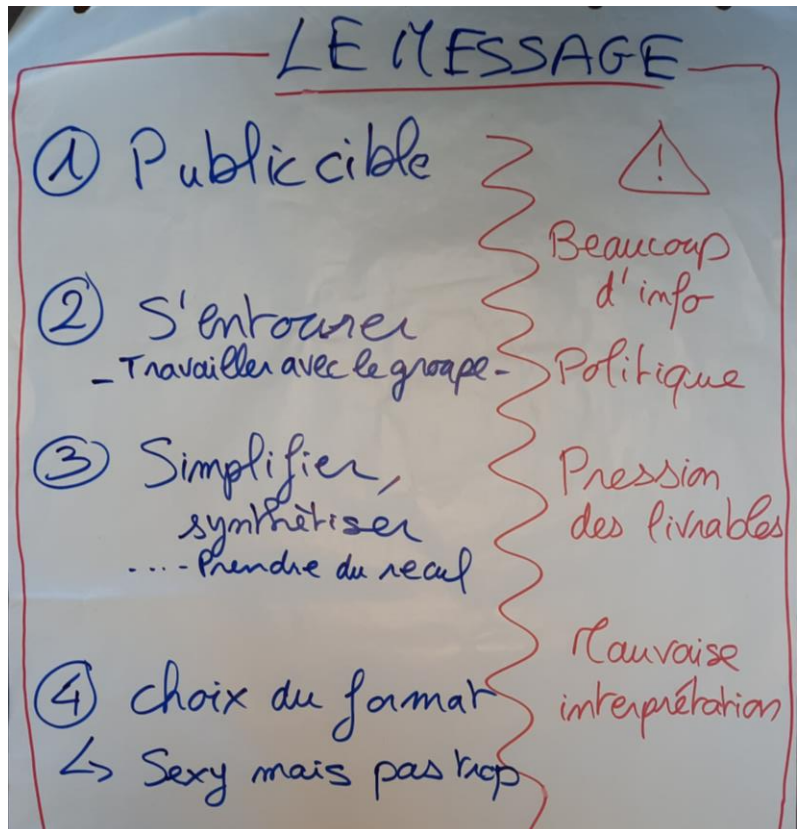 LE MESSAGE
① Public cible
② S'entourer
- Travailler avec le groupe -
③ Simplifier,
synthétiser
.... Prendre du recul
④ choix du format
↳ Sexy mais pas trop
!
Beaucoup
d'info
Politique
Pression
des livrables
Mauvaise
interprétation